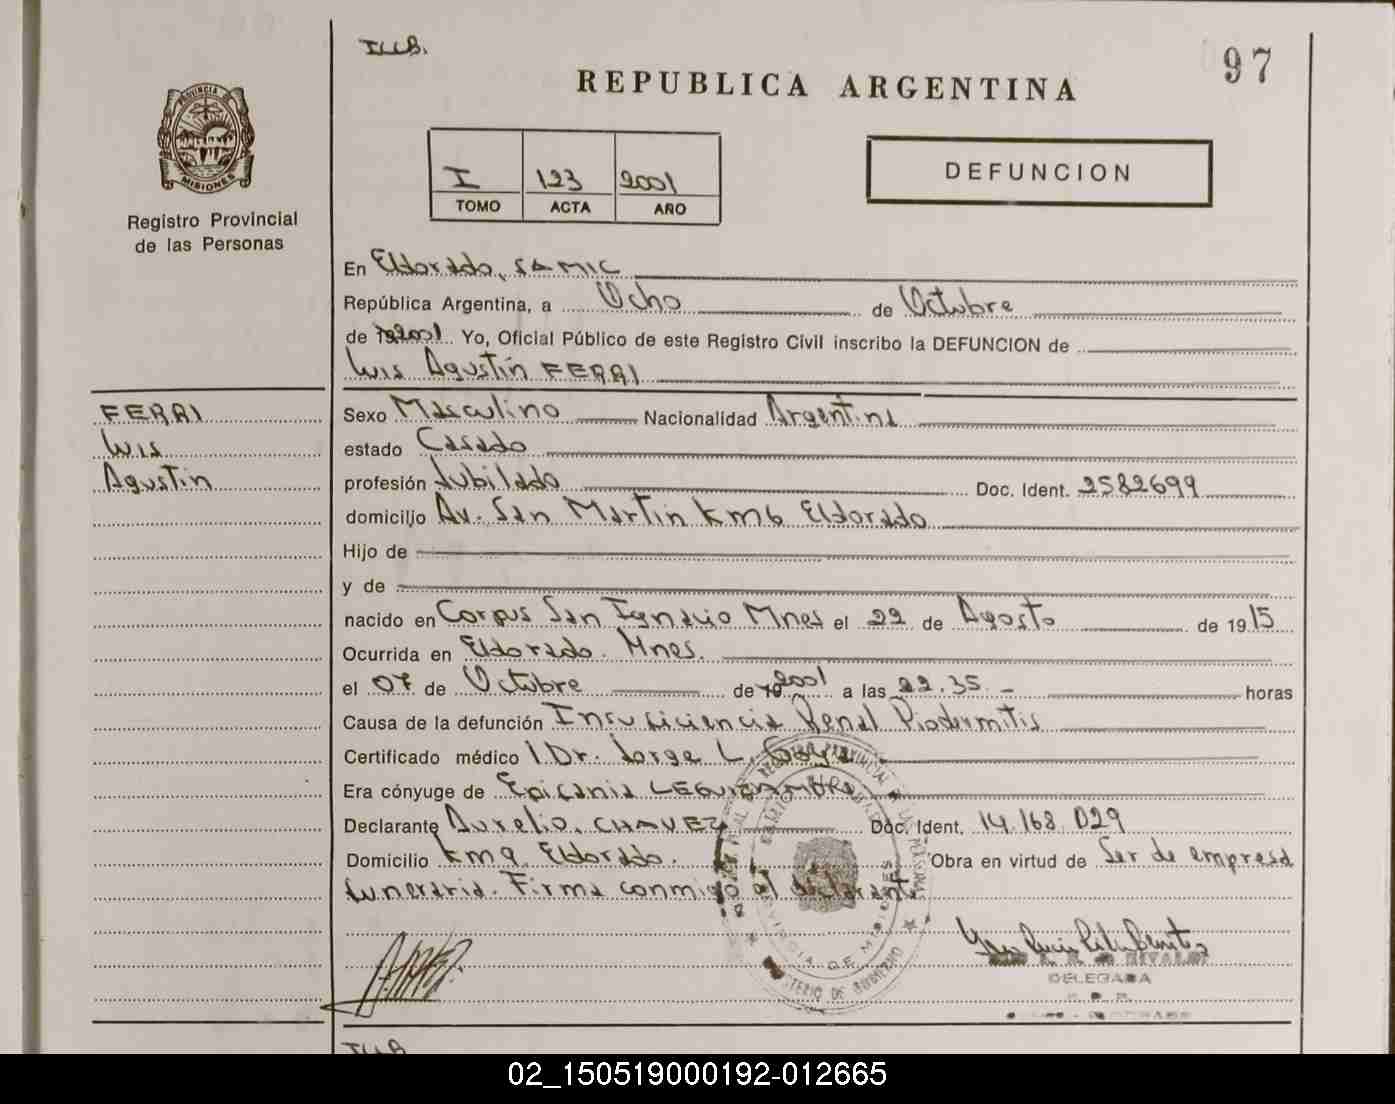 ILLB.
97
REPUBLICA ARGENTINA
PROVINCIA DE
MISIONES
Registro Provincial
de las Personas
I 123 2001
TOMO ACTA AÑO
DEFUNCION
En Eldorado, SAMIC
República Argentina, a Ocho de Octubre
de 2001 Yo, Oficial Público de este Registro Civil inscribo la DEFUNCION de
Luis Agustín FERRI
FERRI
Luis
Agustín
Sexo Masculino Nacionalidad Argentina
estado Casado
profesión Jubilado Doc. Ident. 2582699
domicilio Av. San Martin km6 Eldorado
Hijo de
y de
nacido en Corpus San Ignacio Mnes el 22 de Agosto de 1915
Ocurrida en Eldorado. Mnes.
el 07 de Octubre de 2001 a las 22.35 horas
Causa de la defunción Insuficiencia Renal Piodermitis
Certificado médico Dr. Jorge L.
Era cónyuge de Epifania LEGUIZAMON
Declarante Aurelio. CHAVEZ Doc. Ident. 14.168.029
Domicilio km9. Eldorado. Obra en virtud de Ser de empresa
funeraria. Firma conmigo el declarante
MINISTERIO DE GOBIERNO
PROVINCIA DE MISIONES
DELEGADA
ILLB
02_150519000192-012665